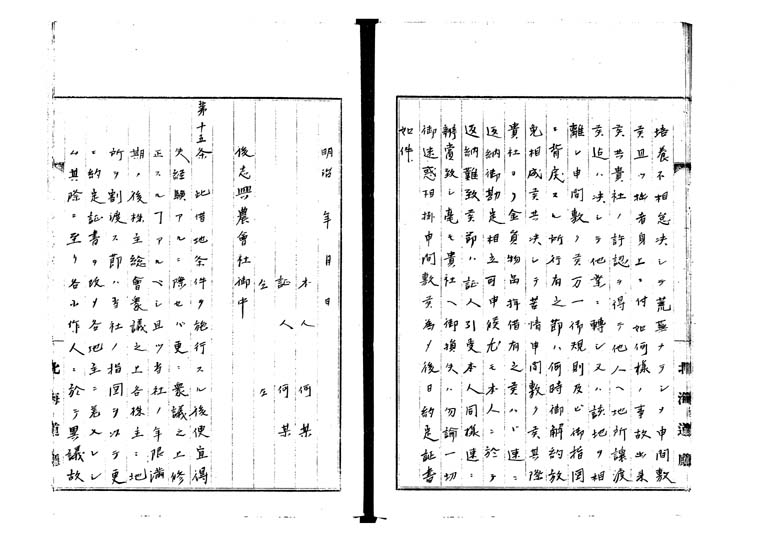 培養不相怠決シテ荒蕪ナラシメ申間敷
亥且ツ拙者身上ニ付如何様ノ事故出来
亥共貴社ノ許認ヲ得テ他人ヘ地所讓渡
亥迠ハ決シテ他業ニ轉シ又ハ該地ヲ相
離レ申間敷亥万一御規則及ヒ御指圖
ニ背戻スル所行有之節ハ何時御解約放
免相成亥共決シテ苦情申間敷亥其際
貴社ヨリ金員物品拝借有之亥ハ速ニ
返納御勘定相立可申候尤モ本人ニ於テ
返納難致亥節ハ証人引受本人同様速ニ
辨賞致シ毫モ貴社ヘ御損失ハ勿論一切
御迷惑相掛申間敷亥為メ後日約定証書
如件
明治 年 月 日
本人 何某
証人 何某
仝 仝
後志興農會社御中
第十五条 此借地条件ヲ施行スル後便宜得
失経験アルニ際セハ更ニ衆議之上修
正スル丁アルヘシ且ツ当社ノ年限満
期ノ後株主総會衆議之上各株主ニ地
所ヲ割渡ス節ハ当社ノ指図ヲ以テ更
ニ約定証書ヲ改メ各地主ニ差入レシ
ム其際ニ至リ各小作人ニ於テ異議故
北海道廳